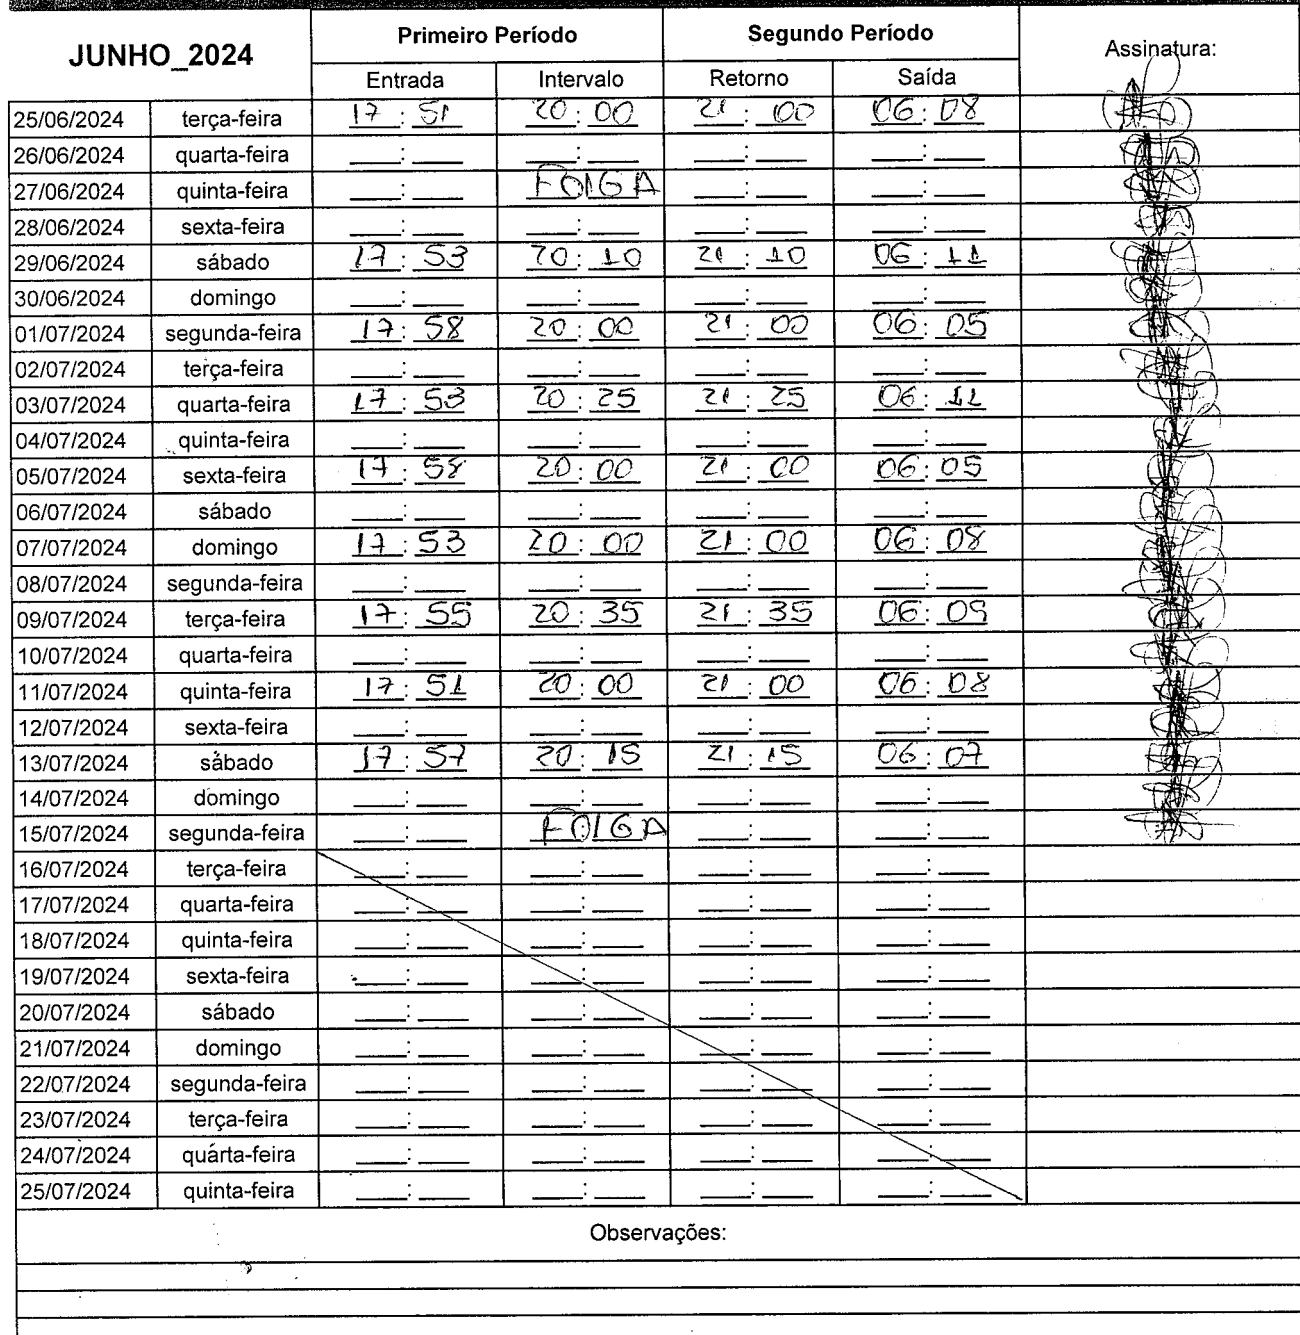 JUNHO_2024 Primeiro Período Segundo Período Assinatura:
Entrada Intervalo Retorno Saída
25/06/2024 terça-feira 17:51 20:00 21:00 06:08
26/06/2024 quarta-feira __:__ __:__ __:__ __:__
27/06/2024 quinta-feira __:__ FOLGA __:__ __:__
28/06/2024 sexta-feira __:__ __:__ __:__ __:__
29/06/2024 sábado 17:53 20:10 21:10 06:11
30/06/2024 domingo __:__ __:__ __:__ __:__
01/07/2024 segunda-feira 17:58 20:00 21:00 06:05
02/07/2024 terça-feira __:__ __:__ __:__ __:__
03/07/2024 quarta-feira 17:53 20:25 21:25 06:11
04/07/2024 quinta-feira __:__ __:__ __:__ __:__
05/07/2024 sexta-feira 17:58 20:00 21:00 06:05
06/07/2024 sábado __:__ __:__ __:__ __:__
07/07/2024 domingo 17:53 20:00 21:00 06:08
08/07/2024 segunda-feira __:__ __:__ __:__ __:__
09/07/2024 terça-feira 17:55 20:35 21:35 06:09
10/07/2024 quarta-feira __:__ __:__ __:__ __:__
11/07/2024 quinta-feira 17:51 20:00 21:00 06:08
12/07/2024 sexta-feira __:__ __:__ __:__ __:__
13/07/2024 sábado 17:57 20:15 21:15 06:07
14/07/2024 domingo __:__ __:__ __:__ __:__
15/07/2024 segunda-feira __:__ FOLGA __:__ __:__
16/07/2024 terça-feira __:__ __:__ __:__ __:__
17/07/2024 quarta-feira __:__ __:__ __:__ __:__
18/07/2024 quinta-feira __:__ __:__ __:__ __:__
19/07/2024 sexta-feira __:__ __:__ __:__ __:__
20/07/2024 sábado __:__ __:__ __:__ __:__
21/07/2024 domingo __:__ __:__ __:__ __:__
22/07/2024 segunda-feira __:__ __:__ __:__ __:__
23/07/2024 terça-feira __:__ __:__ __:__ __:__
24/07/2024 quarta-feira __:__ __:__ __:__ __:__
25/07/2024 quinta-feira __:__ __:__ __:__ __:__
Observações: